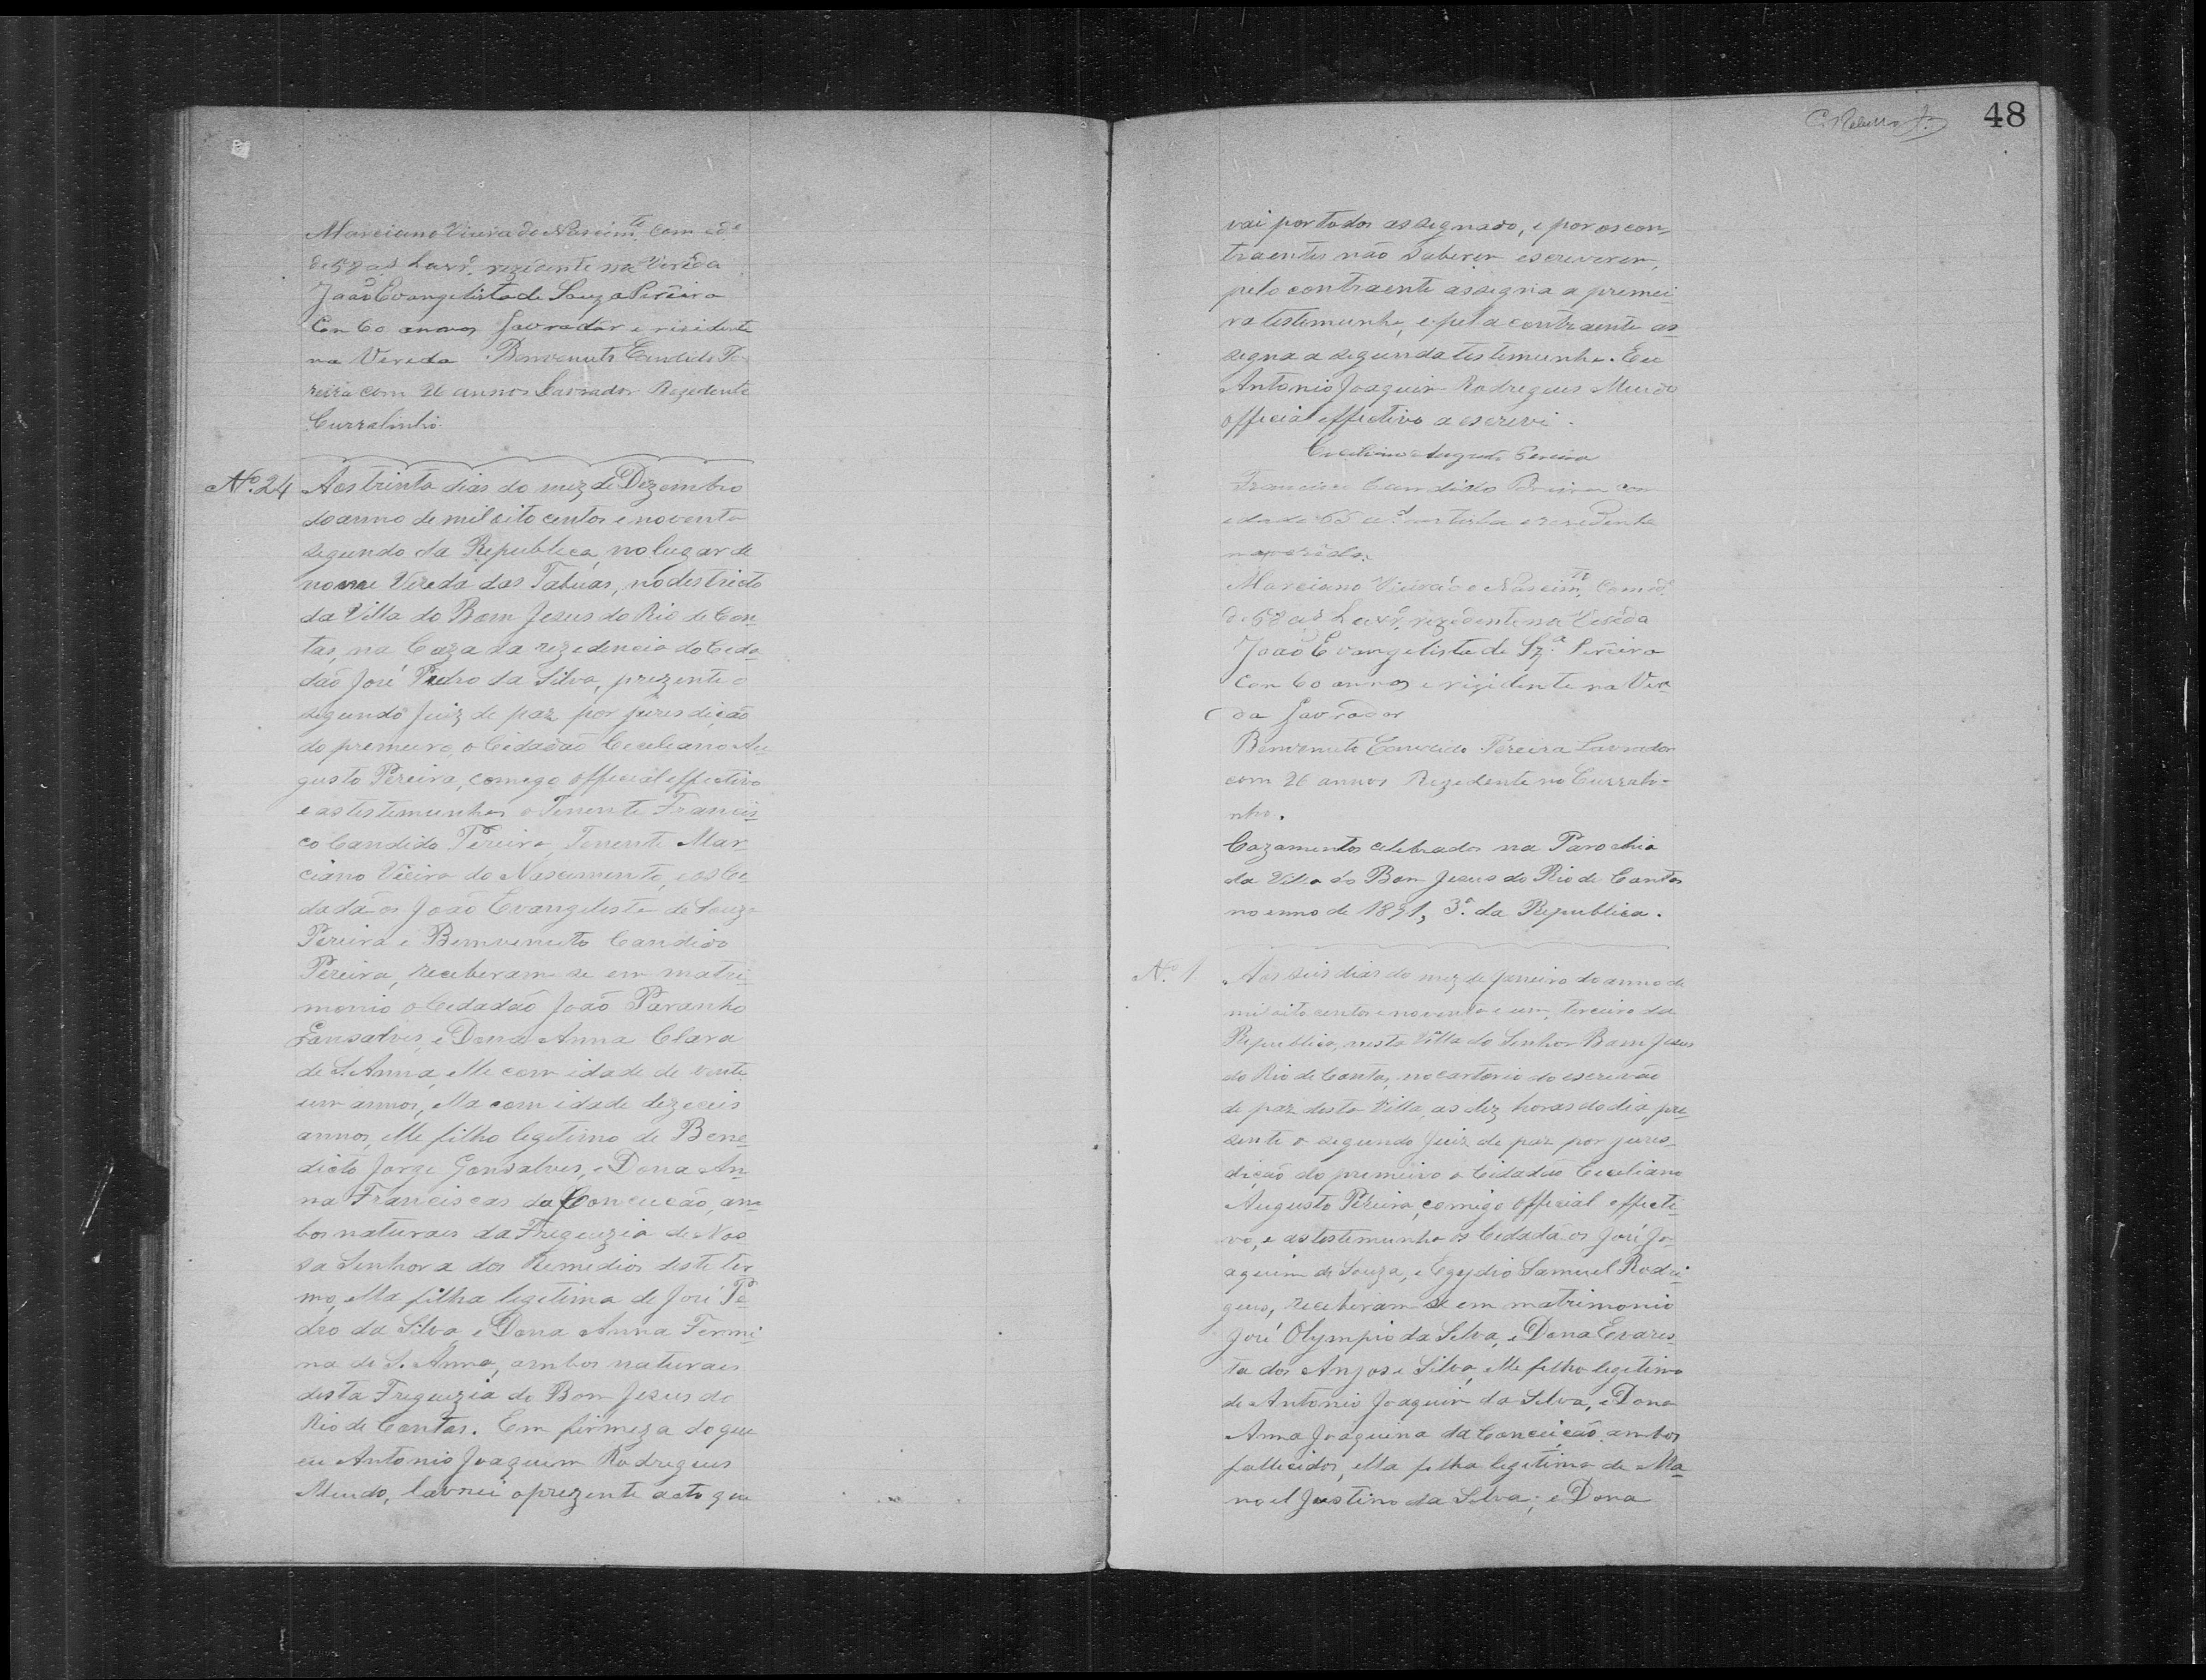 Marciano Vieira do Nascim.to com id.e
de 58 a.s Lavr.or rezidente na Verêda
João Evangelista de Souza Perêira
Con 60 annos Lavrador e risidente
na Vereda Benvenuto Candido Pe
reira com 26 annos Lavrador Rezedente
Curralinho.
Nº. 24 Aos trinta dias do mez de Dezembro
do anno de mil oito centos e noventa
segundo da Republica, no lugar de
nome Vereda das Tabúas, no destricto
da Villa do Bom Jesus do Rio de Con-
tas, na Caza da rezedencia do Ceda-
dão José Pedro da Silva, prezente o
segundo Juiz de paz por juresdicão
do premeiro, o Cidadão Ceceliano Au
gusto Pereira, comego official effectivo
e as testemunhas o Tenente Francis-
co Candido Pereira, Tenente Mar-
ciano Vieira do Nascimento, e os Ce-
dadãos João Evangelista de Souza
Pereira e Bemvenuto Candido
Pereira, receberam-se em matri-
monio o Cedadão João Paranho
Gonsalves, e Dona Anna Clara
de S. Anna, elle com idade de vente
um annos, ella com idade dezeceis
annos, elle filho legitimo de Bene-
dicto Jorge Gonsalves, e Dona An-
na Franciscas da Conceicão, am-
bos naturaes da Freguezia de Nos
sa Senhora dos Remedios deste ter-
mo, ella filha legetima de José Pe-
dro da Silva, e Dona Anna Fermi-
na de S. Anna, ambos naturaes
desta Freguezia do Bom Jesus do
Rio de Contas. Em firmeza do que
eu Antonio Joaquim Rodregues
Mendo, lavrei o prezente acto que
48
vai por todos assegnado, e por os con-
traentes não saberem escreverem,
pelo contraente assegna a premei-
ra testemunha, e pela contraente as-
segna a segunda testemunha. Eu
Antonio Joaquim Rodregues Mendo
official effectivo a escrevi.
Ceciliano Augusto Pereira
Francisco Candido Pereira com
edade 65 a.s artista e residente
na verêda.
Marciano Vieira do Nascim.to Com id.e
de 58 a.s Lavr.or rezidente na Verêda
João Evangelista de Sz.a Perêira
Con 60 annos e rizidente na Ver
da Lavrador
Benvenuto Candido Pereira Lavrador
com 26 annos Rezedente no Currali-
nho.
Cazamentos celebrados na Parochia
da Villa do Bom Jesus do Rio de Contas
no anno de 1891, 3º. da Republica.
Nº. 1 Aos seis dias do mez de Janeiro do anno de
mil oito centos e noventa e um, terceiro da
Republica, nesta Villa do Senhor Bom Jesus
do Rio de Contas, no cartorio do escrivão
de paz desta Villa, as dez horas do dia pre-
sente o segundo Juiz de paz por jures-
dicão do premeiro o Cidadão Ceceliano
Augusto Pereira, comigo official effecti-
vo, e as testemunhas os Cedadãos José Jo-
aquim de Souza, e Egydio Samuel Rodri-
gues, receberam-se em matrimonio
José Olympio da Selva, e Dona Evares-
ta dos Anjos e Silva, elle filho legetimo
de Antonio Joaquim da Selva, e Dona
Anna Joaquina da Conceicão, ambos
fallicidos, ella filha legitima de Ma-
noel Justino da Selva; e Dona